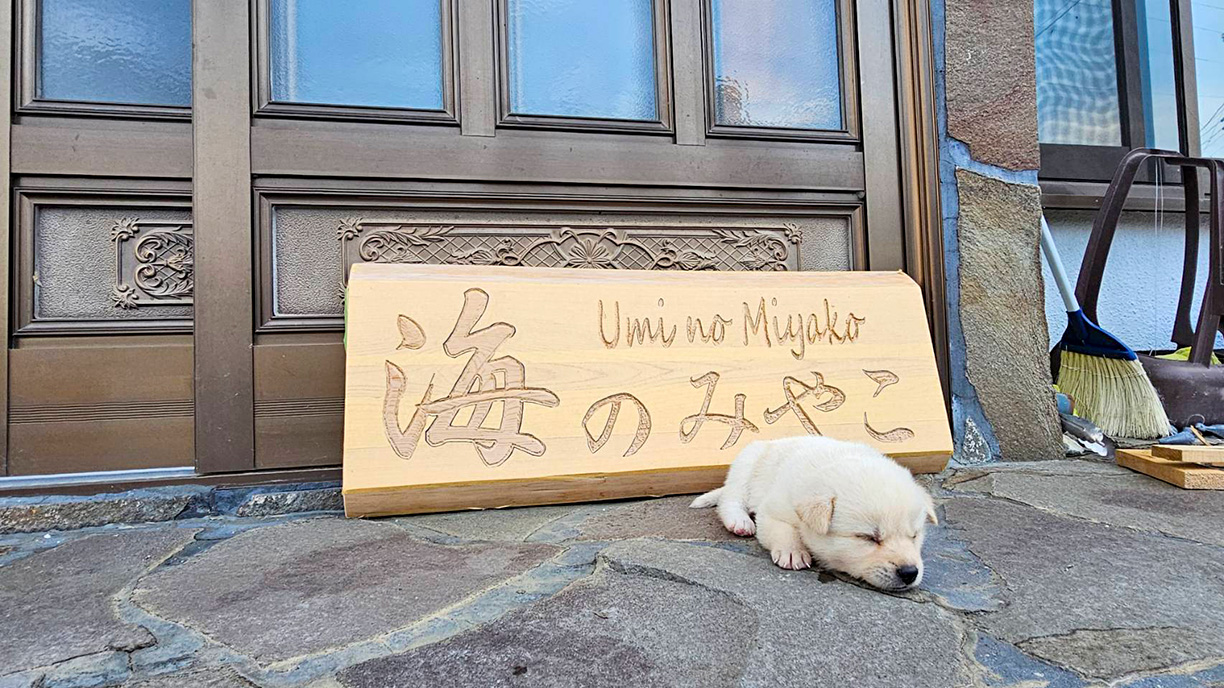 Umi no Miyako
海のみやこ